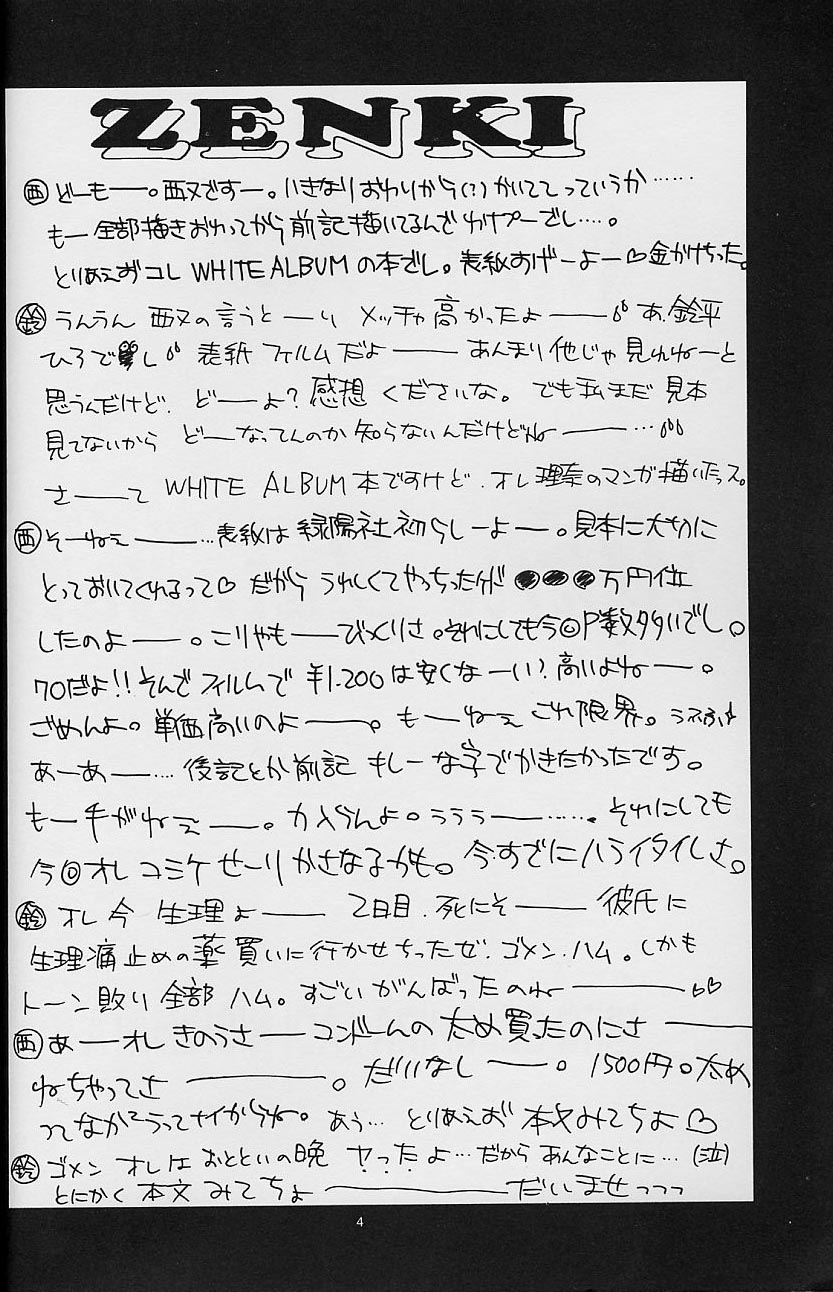 ZENKI
㊄ どーもー。西又ですー。いきなりおわりから(?)かいててっていうか……
もー全部描きおわってから前記描いてるんでわけプーでし…。
とりあえおコレ WHITE ALBUMの本でし。表紙すげーよー♡金かけちった。
鈴 うんうん 西又の言うとーり メッチャ高かったよー あ、鈴平
ひろでし 表紙フィルムだよー あんまり他じゃ見れねーと
思うんだけど、どーよ?感想くださいな。でも私まだ見本
見てないから どーなってんのか知らないんだけどねー…
さーて WHITE ALBUM本ですけど、オレ理奈のマンガ描いたっス。
西 そーねぇー…表紙は緑陽社初らしーよー。見本に大切に
とっておいてくれるって♡ だから うれしくてやっちったけど ●●●万円位
したのよー。こりゃもーびっくりさ。それにしても今回P数タタいでし。
70だよ!!そんでフィルムで ¥1.200は安くなーい?高いよねー。
ごめんよ。単価高いのよー。もーねぇ これ限界。うふふ
あーあー…後記とか前記 もしーな字でかきたかったです。
もー手がねぇー。力入らんよ。うううー……。それにしても
今回オレコミケせーりかさなるかも。今すでにハライタイしさ。
鈴 オレ今 生理よー 2日目、死にそー 彼氏に
生理痛止めの薬買いに行かせちったぜ、ゴメン、ハム。しかも
トーン貼り全部ハム。すごいがんばったのねー♡♡
西 あーオレきのうさーコンドームの太め買ったのにさー
ねちゃってさー。だいなしー。1500円。太め
ってなかなかうってナイからね。あぅ… とりあえお 本文みてちょ♡
鈴 ゴメン オレは おとといの晩 ヤったよ…だから あんなことに…(泣)
とにかく本文みてちょーだいませっっっ
4